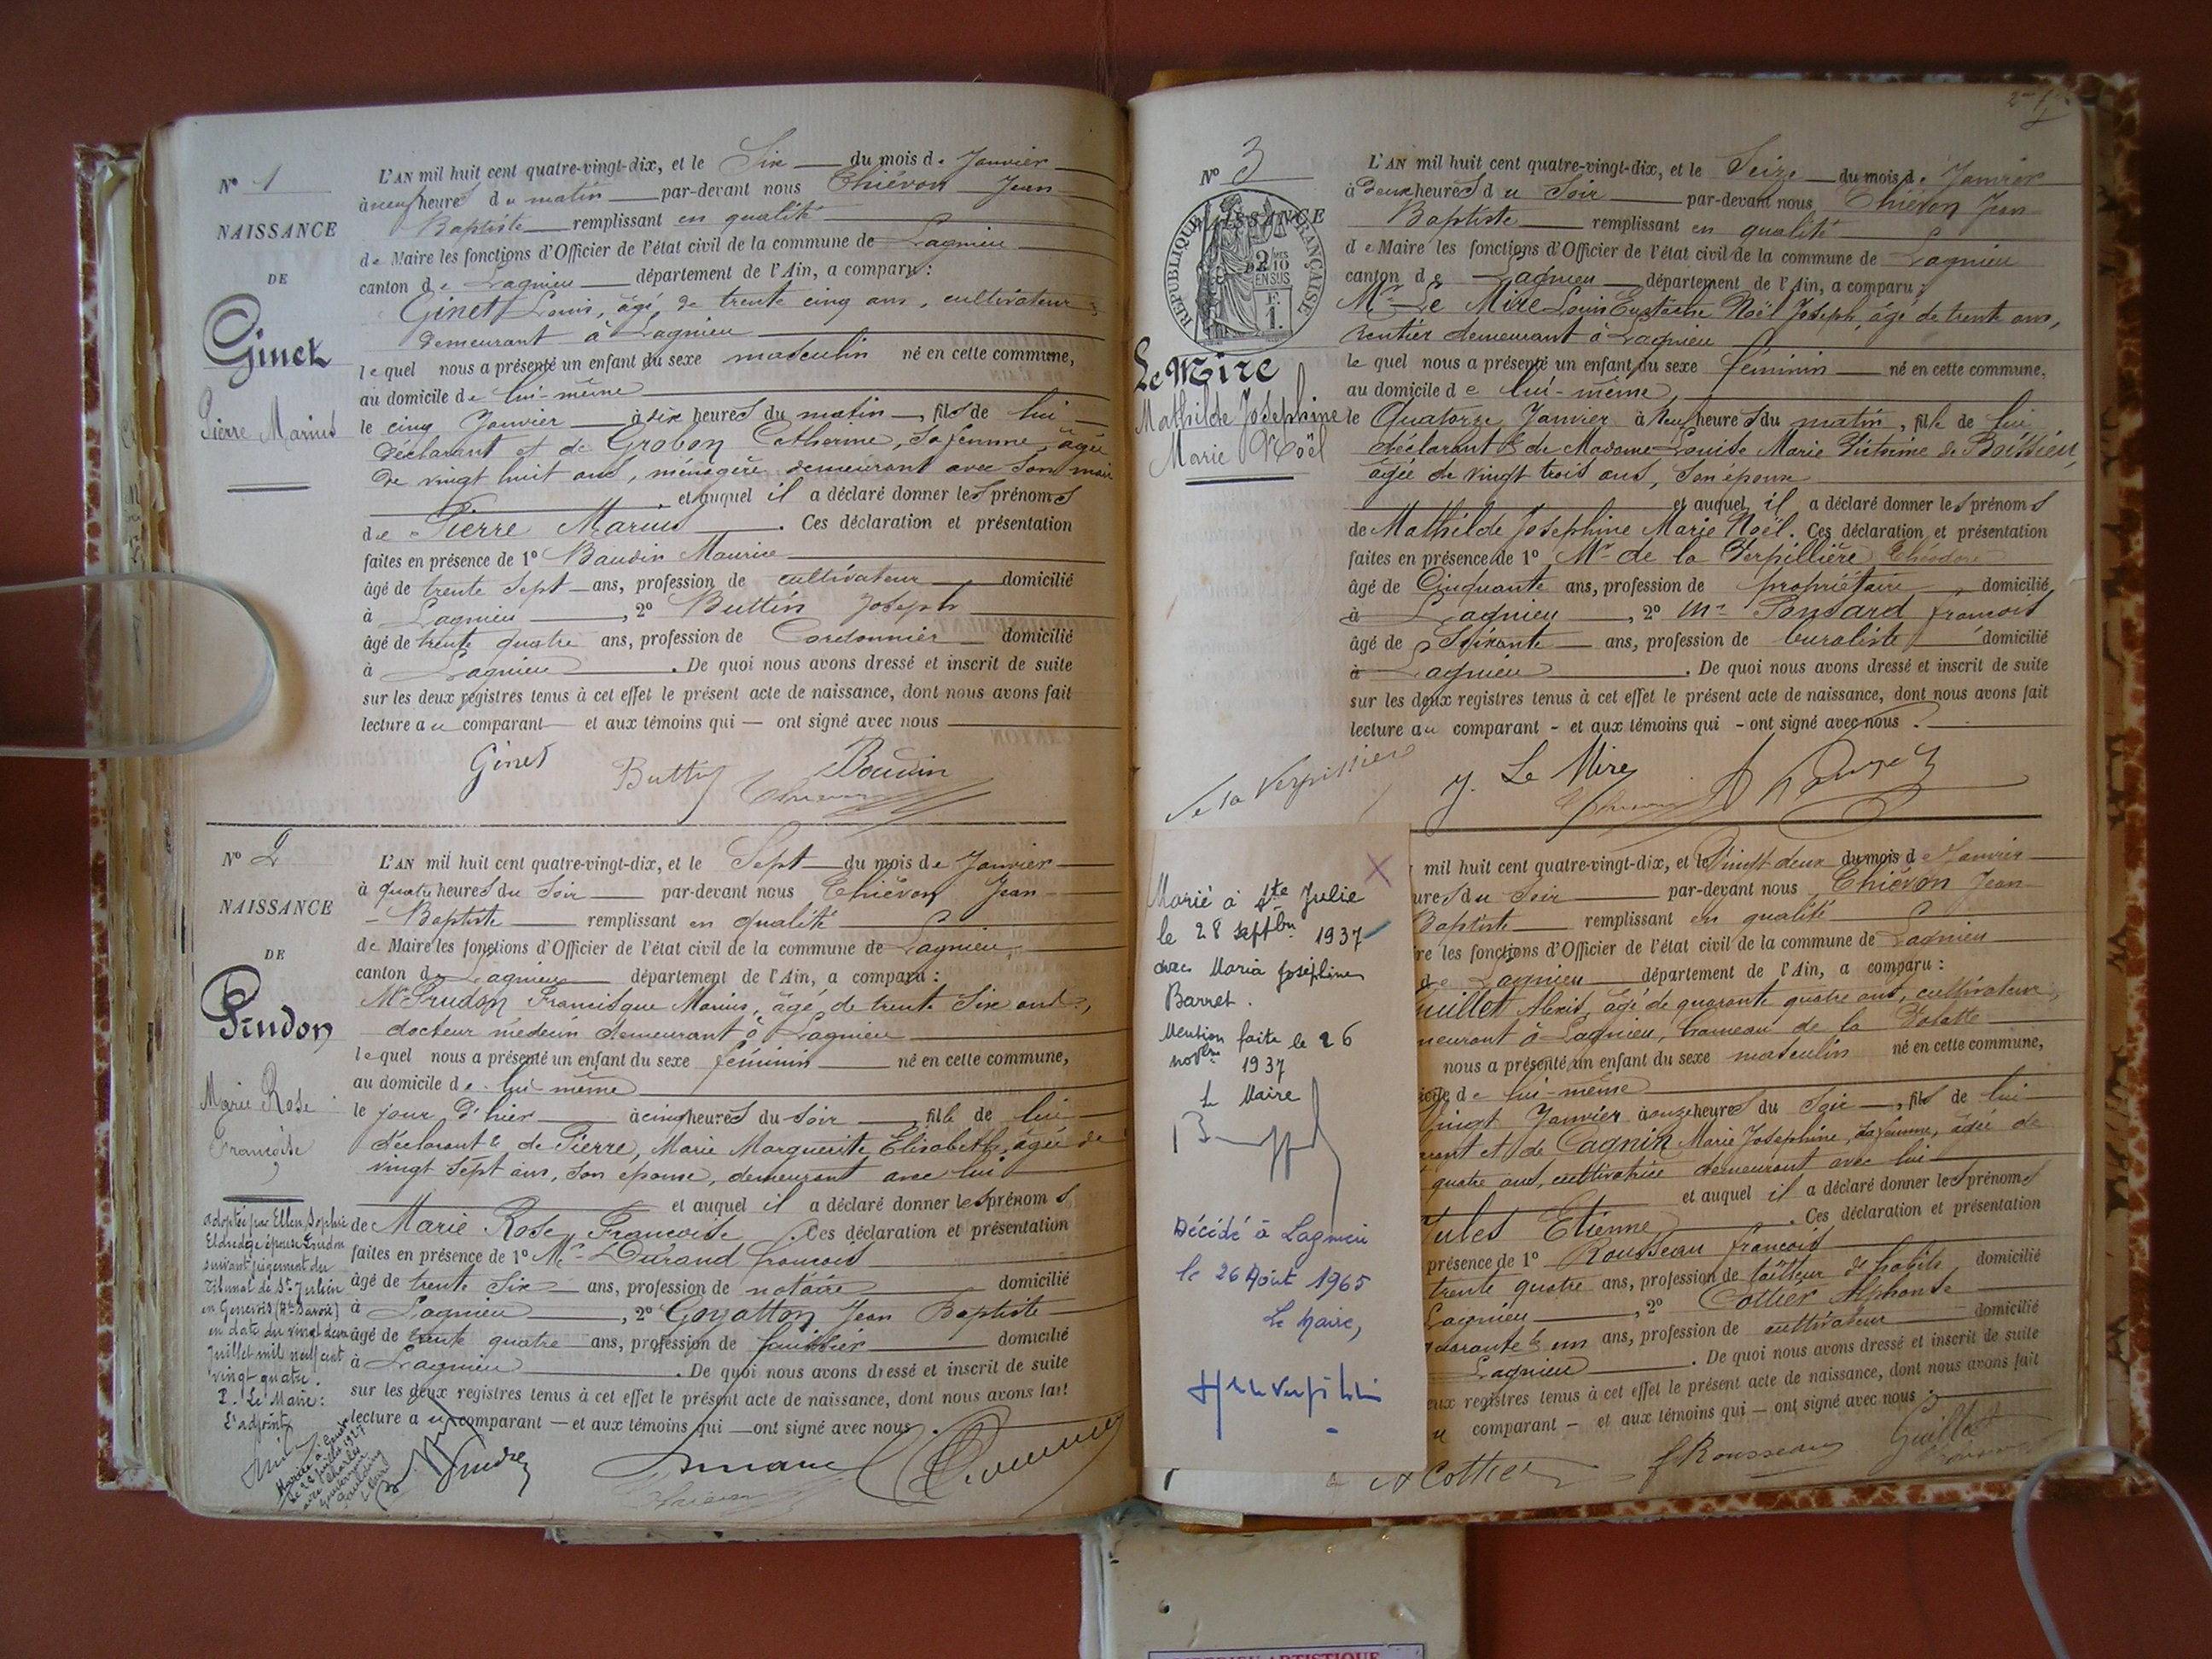 N° 1
NAISSANCE
DE
Ginet
Pierre Marius
L'AN mil huit cent quatre-vingt-dix, et le Six du mois de Janvier
à neuf heures du matin par-devant nous Thiévon Jean
Baptiste remplissant en qualité
de Maire les fonctions d'Officier de l'état civil de la commune de Lagnieu
canton de Lagnieu département de l'Ain, a comparu :
Ginet Louis, âgé de trente cinq ans, cultivateur
demeurant à Lagnieu
lequel nous a présenté un enfant du sexe masculin né en cette commune,
au domicile de lui-même
le cinq Janvier à dix heures du matin, fils de lui
déclarant et de Grobon Catherine, sa femme, âgée
de vingt huit ans, ménagère demeurant avec son mari
et auquel il a déclaré donner les prénoms
de Pierre Marius. Ces déclaration et présentation
faites en présence de 1° Baudin Maurice
âgé de trente sept ans, profession de cultivateur domicilié
à Lagnieu, 2° Buttin Joseph
âgé de trente quatre ans, profession de Cordonnier domicilié
à Lagnieu. De quoi nous avons dressé et inscrit de suite
sur les deux registres tenus à cet effet le présent acte de naissance, dont nous avons fait
lecture au comparant et aux témoins qui ont signé avec nous
Ginet Buttin Baudin
N° 2
NAISSANCE
DE
Prudon
Marie Rose
Françoise
L'AN mil huit cent quatre-vingt-dix, et le Sept du mois de Janvier
à quatre heures du Soir par-devant nous Thiévon Jean
Baptiste remplissant en qualité
de Maire les fonctions d'Officier de l'état civil de la commune de Lagnieu,
canton de Lagnieu département de l'Ain, a comparu :
Mr Prudon Francisque Marius, âgé de trente six ans,
docteur médecin demeurant à Lagnieu
lequel nous a présenté un enfant du sexe féminin né en cette commune,
au domicile de lui-même
le jour d'hier à cinq heures du soir, fille de lui
déclarant & de Pierre, Marie Marguerite Elisabeth, âgée de
vingt sept ans, son épouse, demeurant avec lui
et auquel il a déclaré donner les prénoms
de Marie Rose Françoise. Ces déclaration et présentation
faites en présence de 1° Mr Durand françois
âgé de trente six ans, profession de notaire domicilié
à Lagnieu, 2° Goyatton Jean Baptiste
âgé de trente quatre ans, profession de huissier domicilié
à Lagnieu. De quoi nous avons dressé et inscrit de suite
sur les deux registres tenus à cet effet le présent acte de naissance, dont nous avons fait
lecture au comparant et aux témoins qui ont signé avec nous.
adoptée par Ellen Sophie
Eldredge épouse Prudon
suivant jugement du
Tribunal de St Julien
en Genevois (Hte Savoie)
en date du vingt deux
juillet mil neuf cent
vingt quatre.
P. Le Maire :
L'adjoint
Mariée à
le 22 juillet 1927
avec Charles
Prudon
N° 3
NAISSANCE
REPUBLIQUE FRANÇAISE
2/10
EN SUS
F.
1.
Le Mire
Mathilde Josephine
Marie Noël
L'AN mil huit cent quatre-vingt-dix, et le Seize du mois de Janvier
à Deux heures du Soir par-devant nous Thiévon Jean
Baptiste remplissant en qualité
de Maire les fonctions d'Officier de l'état civil de la commune de Lagnieu
canton de Lagnieu département de l'Ain, a comparu :
Mr Le Mire Louis Eustache Noël Joseph, âgé de trente ans,
rentier demeurant à Lagnieu
lequel nous a présenté un enfant du sexe féminin né en cette commune,
au domicile de lui-même
le Quatorze Janvier à neuf heures du matin, fille de lui
déclarant & de Madame Louise Marie Victorine de Boissieu,
âgée de vingt trois ans, son épouse
et auquel il a déclaré donner les prénoms
de Mathilde Josephine Marie Noël. Ces déclaration et présentation
faites en présence de 1° Mr de la Verpillière Théodore
âgé de Cinquante ans, profession de propriétaire domicilié
à Lagnieu, 2° Mr Ponsard françois
âgé de Soixante ans, profession de buraliste domicilié
à Lagnieu. De quoi nous avons dressé et inscrit de suite
sur les deux registres tenus à cet effet le présent acte de naissance, dont nous avons fait
lecture au comparant - et aux témoins qui - ont signé avec nous.
de la Verpillière J. Le Mire
Marié à Ste Julie
le 28 septbre 1937
avec Maria Joséphine
Barret.
Mention faite le 26
novbre 1937
Le Maire
Décédé à Lagnieu
le 26 Août 1965
Le Maire,
mil huit cent quatre-vingt-dix, et le Vingt deux du mois de Janvier
ures du Soir par-devant nous Thiévon Jean
Baptiste remplissant en qualité
re les fonctions d'Officier de l'état civil de la commune de Lagnieu
de Lagnieu département de l'Ain, a comparu :
uillet Alexis, âgé de quarante quatre ans, cultivateur,
meurant à Lagnieu, hameau de la
nous a présenté un enfant du sexe masculin né en cette commune,
icile de lui-même
vingt Janvier à onze heures du Soir, fils de lui
rant et de Cagnin Marie Josephine, sa femme, âgée de
quatre ans, cultivatrice demeurant avec lui
et auquel il a déclaré donner les prénoms
Jules Etienne. Ces déclaration et présentation
présence de 1° Rousseau françois
trente quatre ans, profession de tailleur d'habits domicilié
Lagnieu, 2° Cottier Alphonse
quarante & un ans, profession de cultivateur domicilié
Lagnieu. De quoi nous avons dressé et inscrit de suite
eux registres tenus à cet effet le présent acte de naissance, dont nous avons fait
u comparant - et aux témoins qui - ont signé avec nous :
A Cottier f Rousseau Guillet